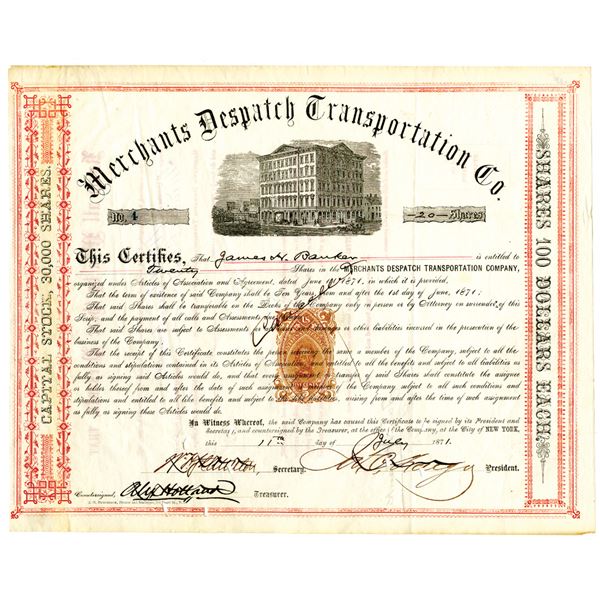 Merchants Despatch Transportation Co.
No. 4
-20- Shares
CAPITAL STOCK, 30,000 SHARES.
SHARES 100 DOLLARS EACH.
This Certifies, That James H. Banker is entitled to
Twenty Shares in the MERCHANTS DESPATCH TRANSPORTATION COMPANY,
organized under Articles of Association and Agreement, dated June 1st 1871, in which it is provided,
That the term of existence of said Company shall be Ten Years from and after the 1st day of June, 1871;
That said Shares shall be transferable on the Books of the Company only in person or by Attorney on surrender of this
Scrip; and the payment of all calls and Assessments
That said Shares are subject to Assessments for losses and damages or other liabilities incurred in the prosecution of the
business of the Company;
That the receipt of this Certificate constitutes the person receiving the same a member of the Company, subject to all the
conditions and stipulations contained in its Articles of Association, and entitled to all the benefits and subject to all liabilities
as fully as signing said Articles would do, and that every assignment or transfer of said Shares shall constitute the assignee
holder thereof from and after the date of such assignment a member of the Company subject to all such conditions and
stipulations and entitled to all like benefits and subject to like liabilities, arising from and after the time of such assignment
as fully as signing these Articles would do.
In Witness Whereof, the said Company has caused this Certificate to be signed by its President and
Secretary, and countersigned by the Treasurer, at the office of the Company, at the City of NEW YORK,
this 11th day of July 1871.
Secretary. President.
Countersigned, Treasurer.